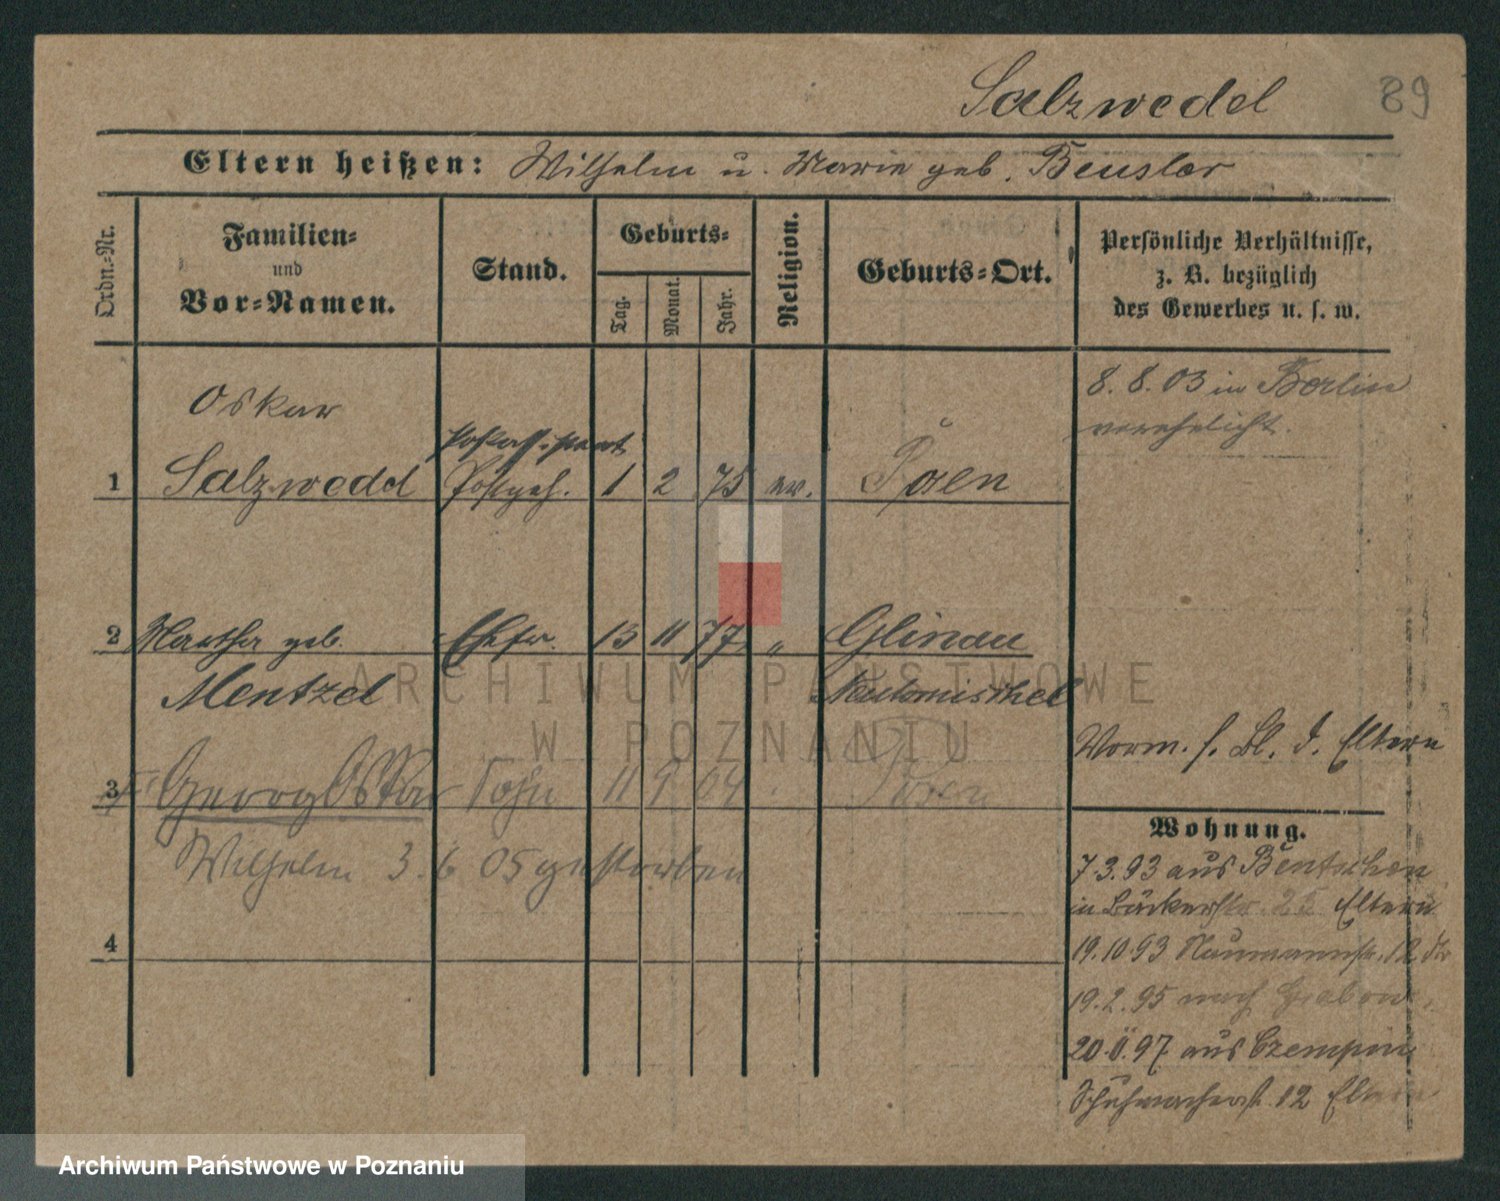 Salzwedel 89
Eltern heißen: Wilhelm u. Marie geb. Beusler
Ordn.=Nr.
Familien=
und
Vor=Namen.
Stand.
Geburts=
Tag.
Monat.
Jahr.
Religion.
Geburts=Ort.
Persönliche Verhältnisse,
z. B. bezüglich
des Gewerbes u. s. w.
8. 8. 03 in Berlin
verehelicht.
Oskar
Postassistent
1 Salzwedel Postgeh. 1 2 75 ev. Posen
2 Martha geb. Ehefr. 13 11 77 „ Glinau
Mentzel Neutomischel
Vorm. s. Bl. d. Eltern
3 Georg Oskar Sohn 11 9 04 Posen
Wilhelm 3. 6 05 gestorben
4
Wohnung.
7.3.93 aus Bentschen
in Bäckerstr. 25 Eltern
19.10.93 Naumannstr. 12
19.2.95 nach
20. 97 aus Czempin
Schuhmacherst. 12 Eltern
ARCHIWUM PAŃSTWOWE
W POZNANIU
Archiwum Państwowe w Poznaniu